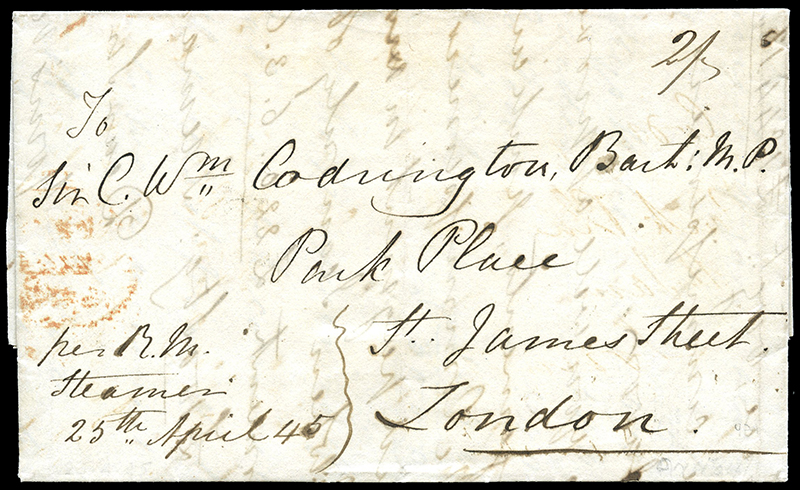 2/
To
Sir C. Wm Codrington, Bart: M.P.
Park Place
St. James Street.
London.
per R.M.
Steamer
25th April 45